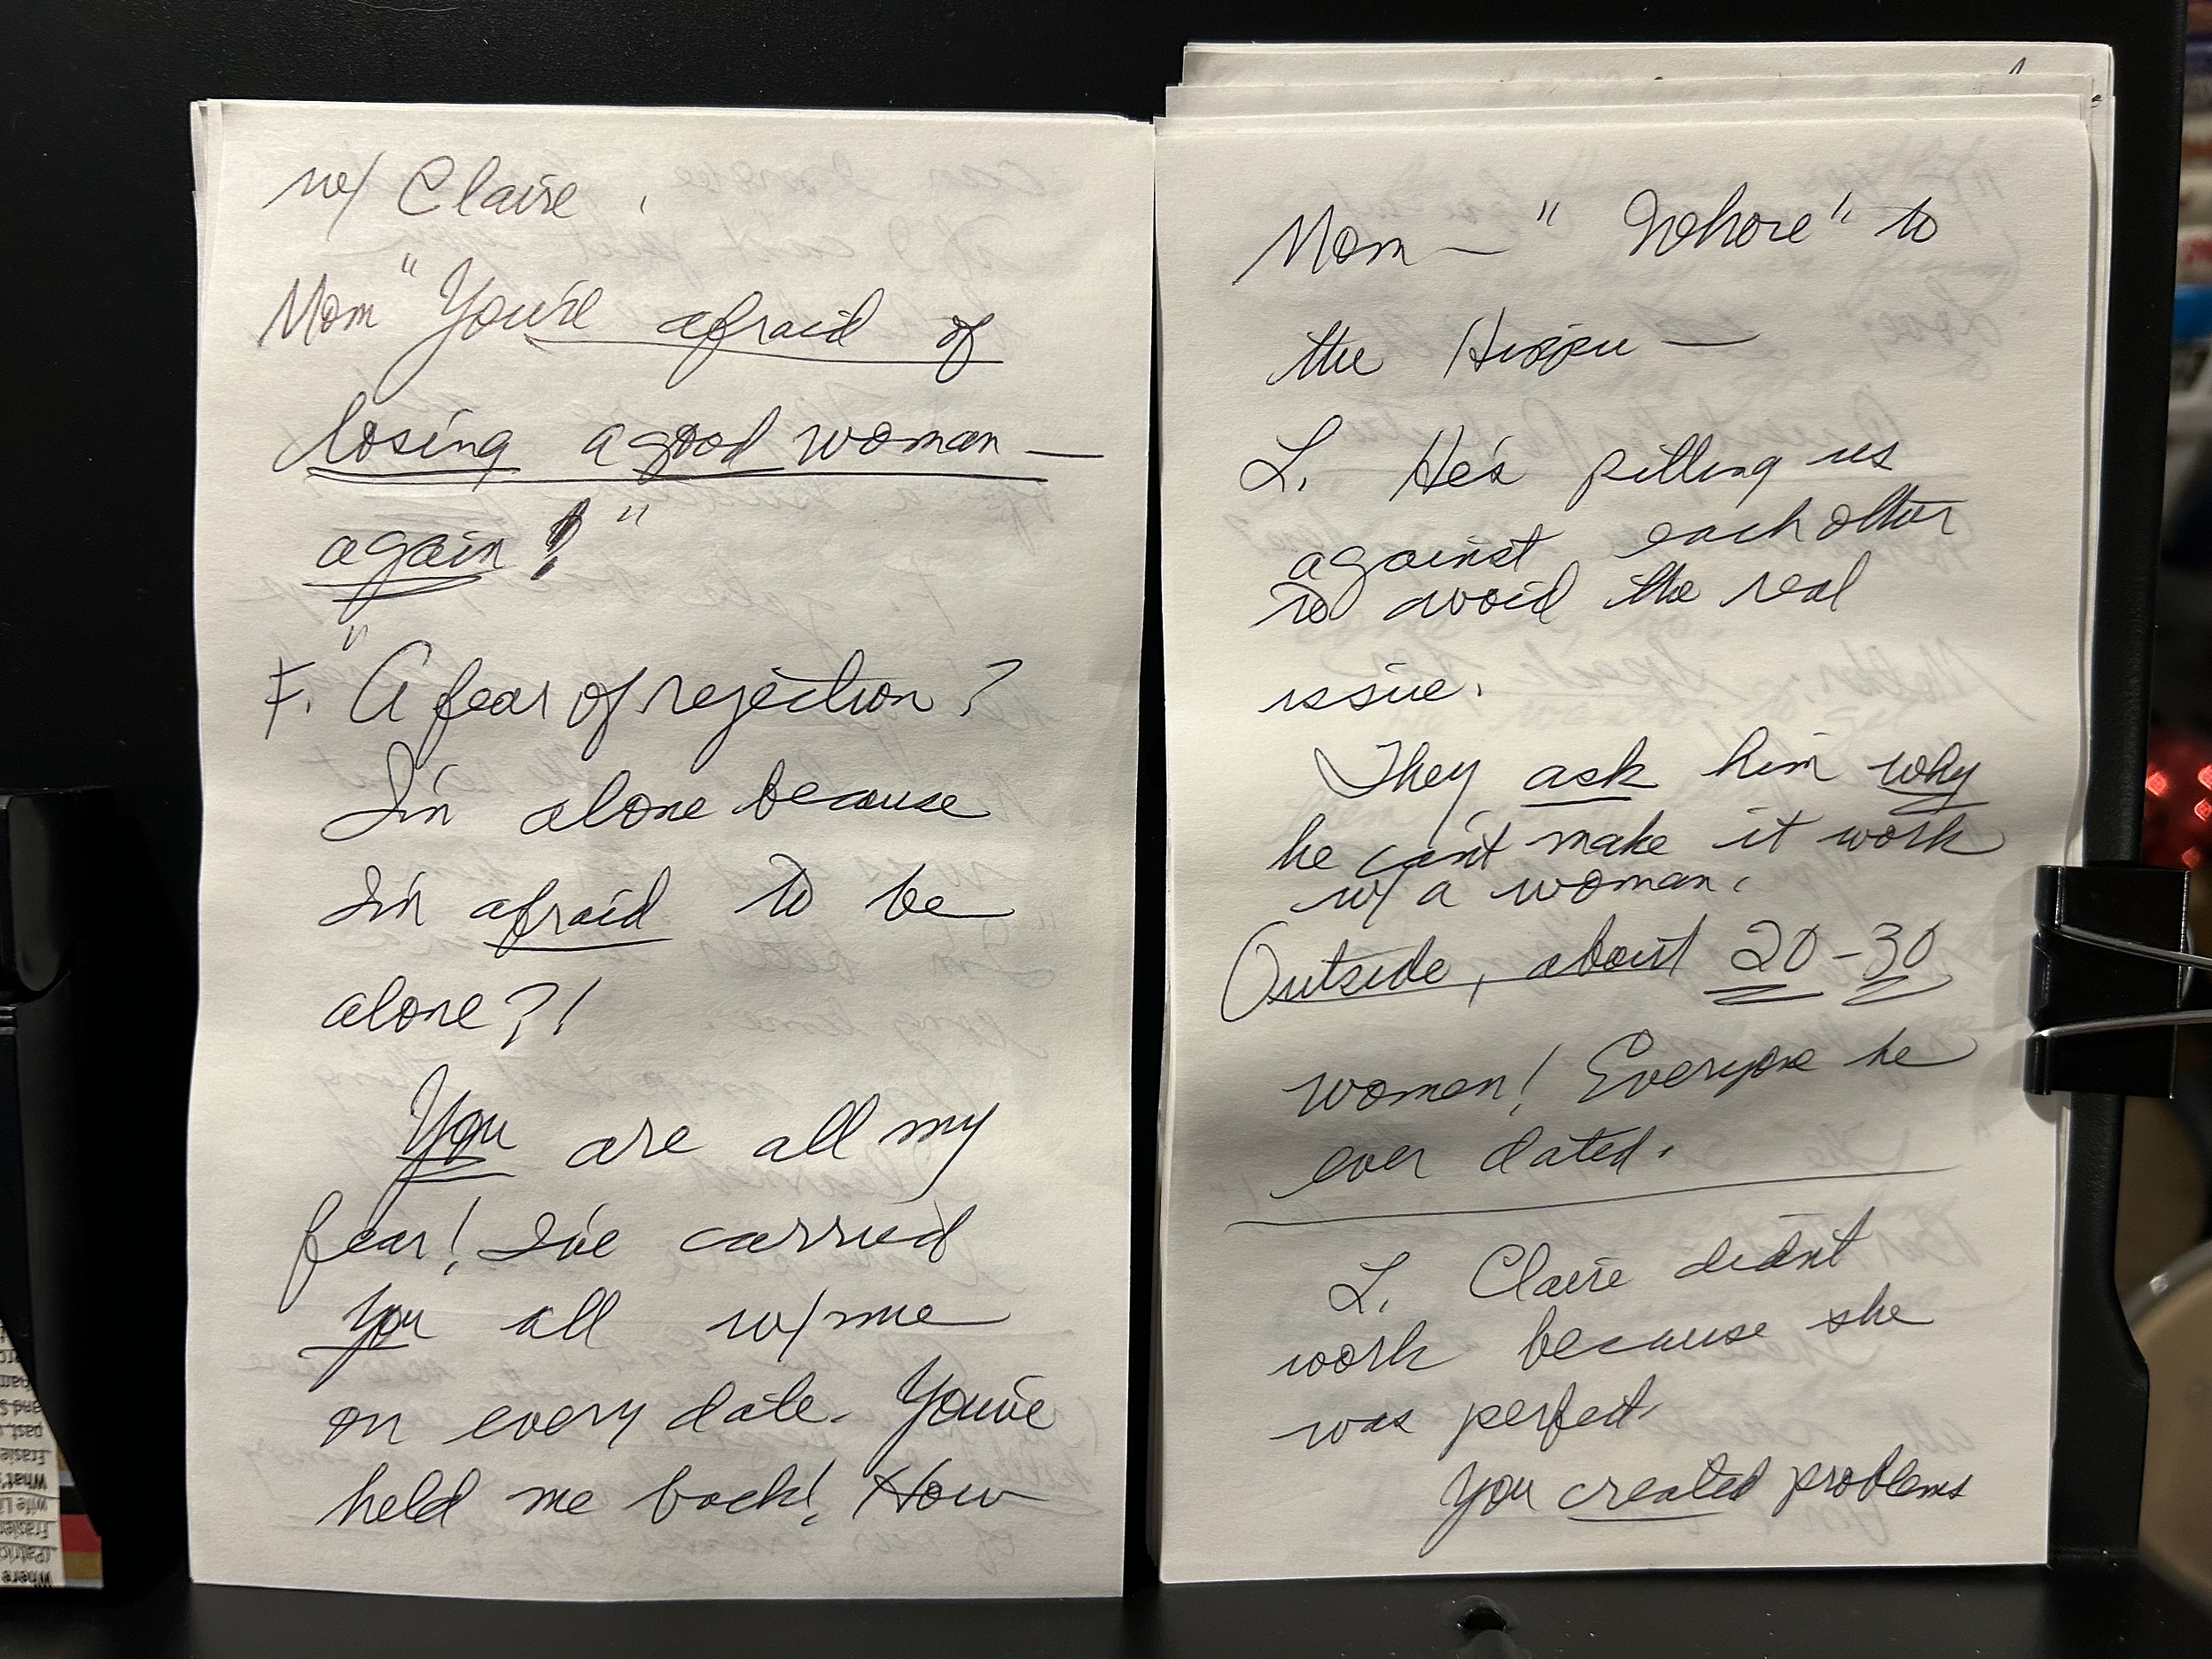 w/ Claire.
Mom "You're afraid of
losing a good woman —
again!"
F. "A fear of rejection?
I'm alone because
I'm afraid to be
alone?!
You are all my
fear! I've carried
you all w/ me
on every date. You've
held me back! How
Mom — "Whore" to
the Hippie —
L. He's pitting us
against each other
to avoid the real
issue.
They ask him why
he can't make it work
w/ a woman.
Outside, about 20-30
women! Everyone he
ever dated.
L. Claire didn't
work because she
was perfect.
You created problems